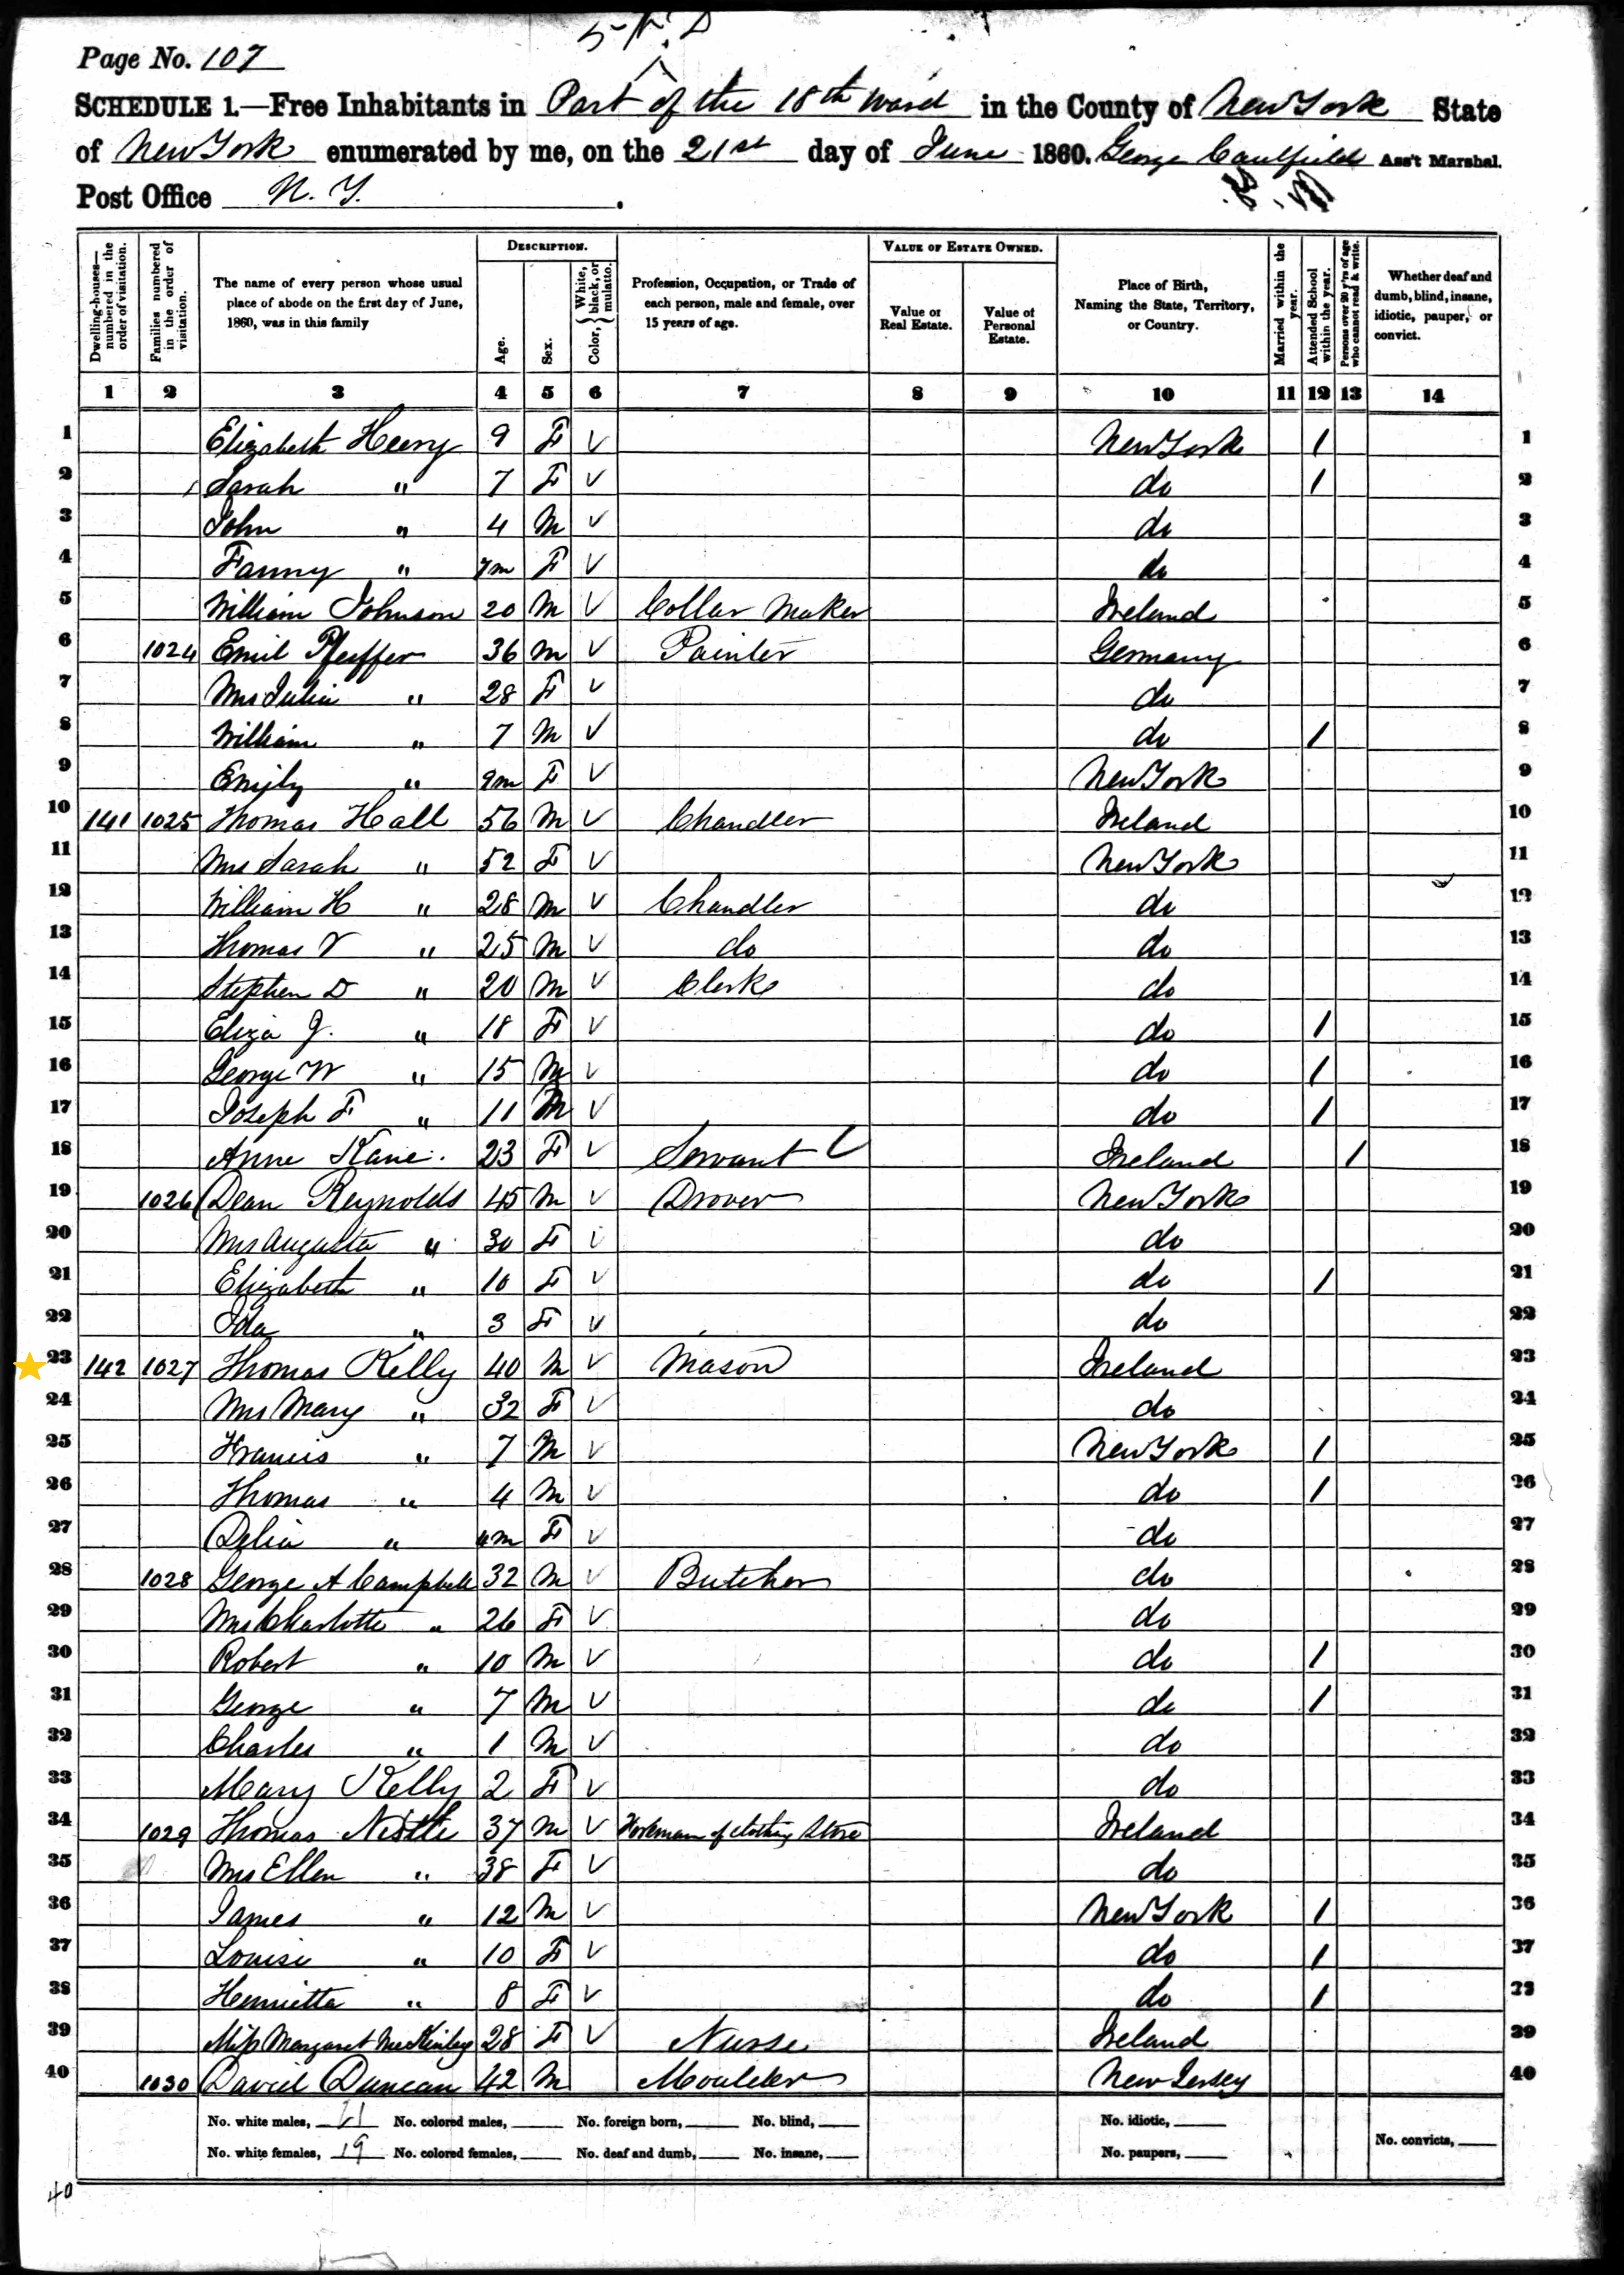 Page No. 107
SCHEDULE 1.—Free Inhabitants in Part of the 18th Ward in the County of New York State
of New York enumerated by me, on the 21st day of June 1860. George Caulfield Ass't Marshal.
Post Office N. Y.
Dwelling-houses—numbered in the order of visitation.
Families numbered in the order of visitation.
The name of every person whose usual place of abode on the first day of June, 1860, was in this family
DESCRIPTION.
Age.
Sex.
Color, White, black, or mulato.
Profession, Occupation, or Trade of each person, male and female, over 15 years of age.
VALUE OF ESTATE OWNED.
Value of Real Estate.
Value of Personal Estate.
Place of Birth, Naming the State, Territory, or Country.
Married within the year.
Attended School within the year.
Persons over 20 y'rs of age who cannot read & write.
Whether deaf and dumb, blind, insane, idiotic, pauper, or convict.
1 2 3 4 5 6 7 8 9 10 11 12 13 14
1 Elizabeth Heery 9 F √ New York / 1
2 Sarah " 7 F √ do / 2
3 John " 4 M √ do 3
4 Fanny " 7m F √ do 4
5 William Johnson 20 M √ Collar Maker Ireland 5
6 1024 Emil Pfeiffer 36 M √ Painter Germany 6
7 Mrs Julia " 28 F √ do 7
8 William " 7 M √ do / 8
9 Emily " 9m F √ New York 9
10 141 1025 Thomas Hall 56 M √ Chandler Ireland 10
11 Mrs Sarah " 52 F √ New York 11
12 William H " 28 M √ Chandler do 12
13 Thomas V " 25 M √ do do 13
14 Stephen D " 20 M √ Clerk do 14
15 Eliza J. " 18 F √ do / 15
16 George W " 15 M √ do / 16
17 Joseph F " 11 M √ do / 17
18 Anne Kane. 23 F √ Servant Ireland / 18
19 1026 Dean Reynolds 45 M √ Drover New York 19
20 Mrs Augusta " 30 F √ do 20
21 Elizabeth " 10 F √ do / 21
22 Ida " 3 F √ do 22
23 142 1027 Thomas Kelly 40 M √ Mason Ireland 23
24 Mrs Mary " 32 F √ do 24
25 Francis " 7 M √ New York / 25
26 Thomas " 4 M √ do / 26
27 Delia " 4m F √ do 27
28 1028 George A Campbell 32 M √ Butcher do 28
29 Mrs Charlotte " 26 F √ do 29
30 Robert " 10 M √ do / 30
31 George " 7 M √ do / 31
32 Charles " 1 M √ do 32
33 Mary Kelly 2 F √ do 33
34 1029 Thomas 37 M √ Foreman of Clothing Store Ireland 34
35 Mrs Ellen " 38 F √ do 35
36 James " 12 M √ New York / 36
37 Louise " 10 F √ do / 37
38 Henrietta " 8 F √ do / 38
39 Miss Margaret McKinley 28 F √ Nurse Ireland 39
40 1030 David Duncan 42 M Moulder New Jersey 40
No. white males, 21 No. colored males, No. foreign born, No. blind, No. idiotic,
No. white females, 19 No. colored females, No. deaf and dumb, No. insane, No. paupers, No. convicts,
40